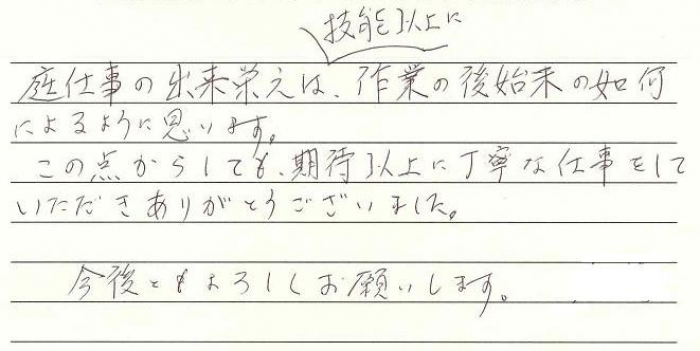 技能以上に
庭仕事の出来栄えは、作業の後始末の如何
によるように思います。
この点からしても、期待以上に丁寧な仕事をして
いただきありがとうございました。
今後ともよろしくお願いします。